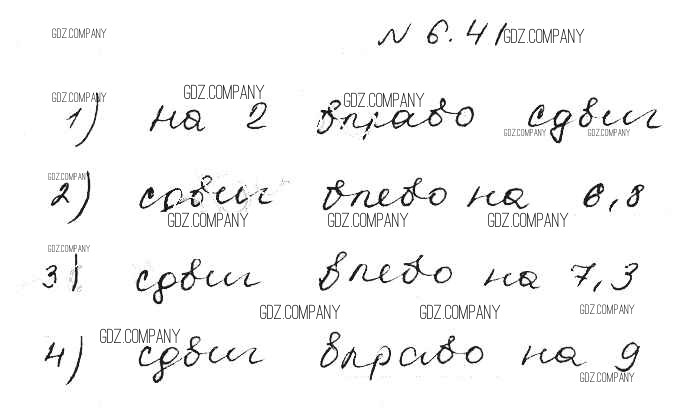 GDZ.COMPANY
№ 6.41 GDZ.COMPANY
GDZ.COMPANY GDZ.COMPANY GDZ.COMPANY
1) на 2 вправо сдвиг
GDZ.COMPANY GDZ.COMPANY
GDZ.COMPANY
2) сдвиг влево на 6,8
GDZ.COMPANY GDZ.COMPANY GDZ.COMPANY
GDZ.COMPANY
3) сдвиг влево на 7,3
GDZ.COMPANY GDZ.COMPANY GDZ.COMPANY
GDZ.COMPANY
4) сдвиг вправо на 9
GDZ.COMPANY